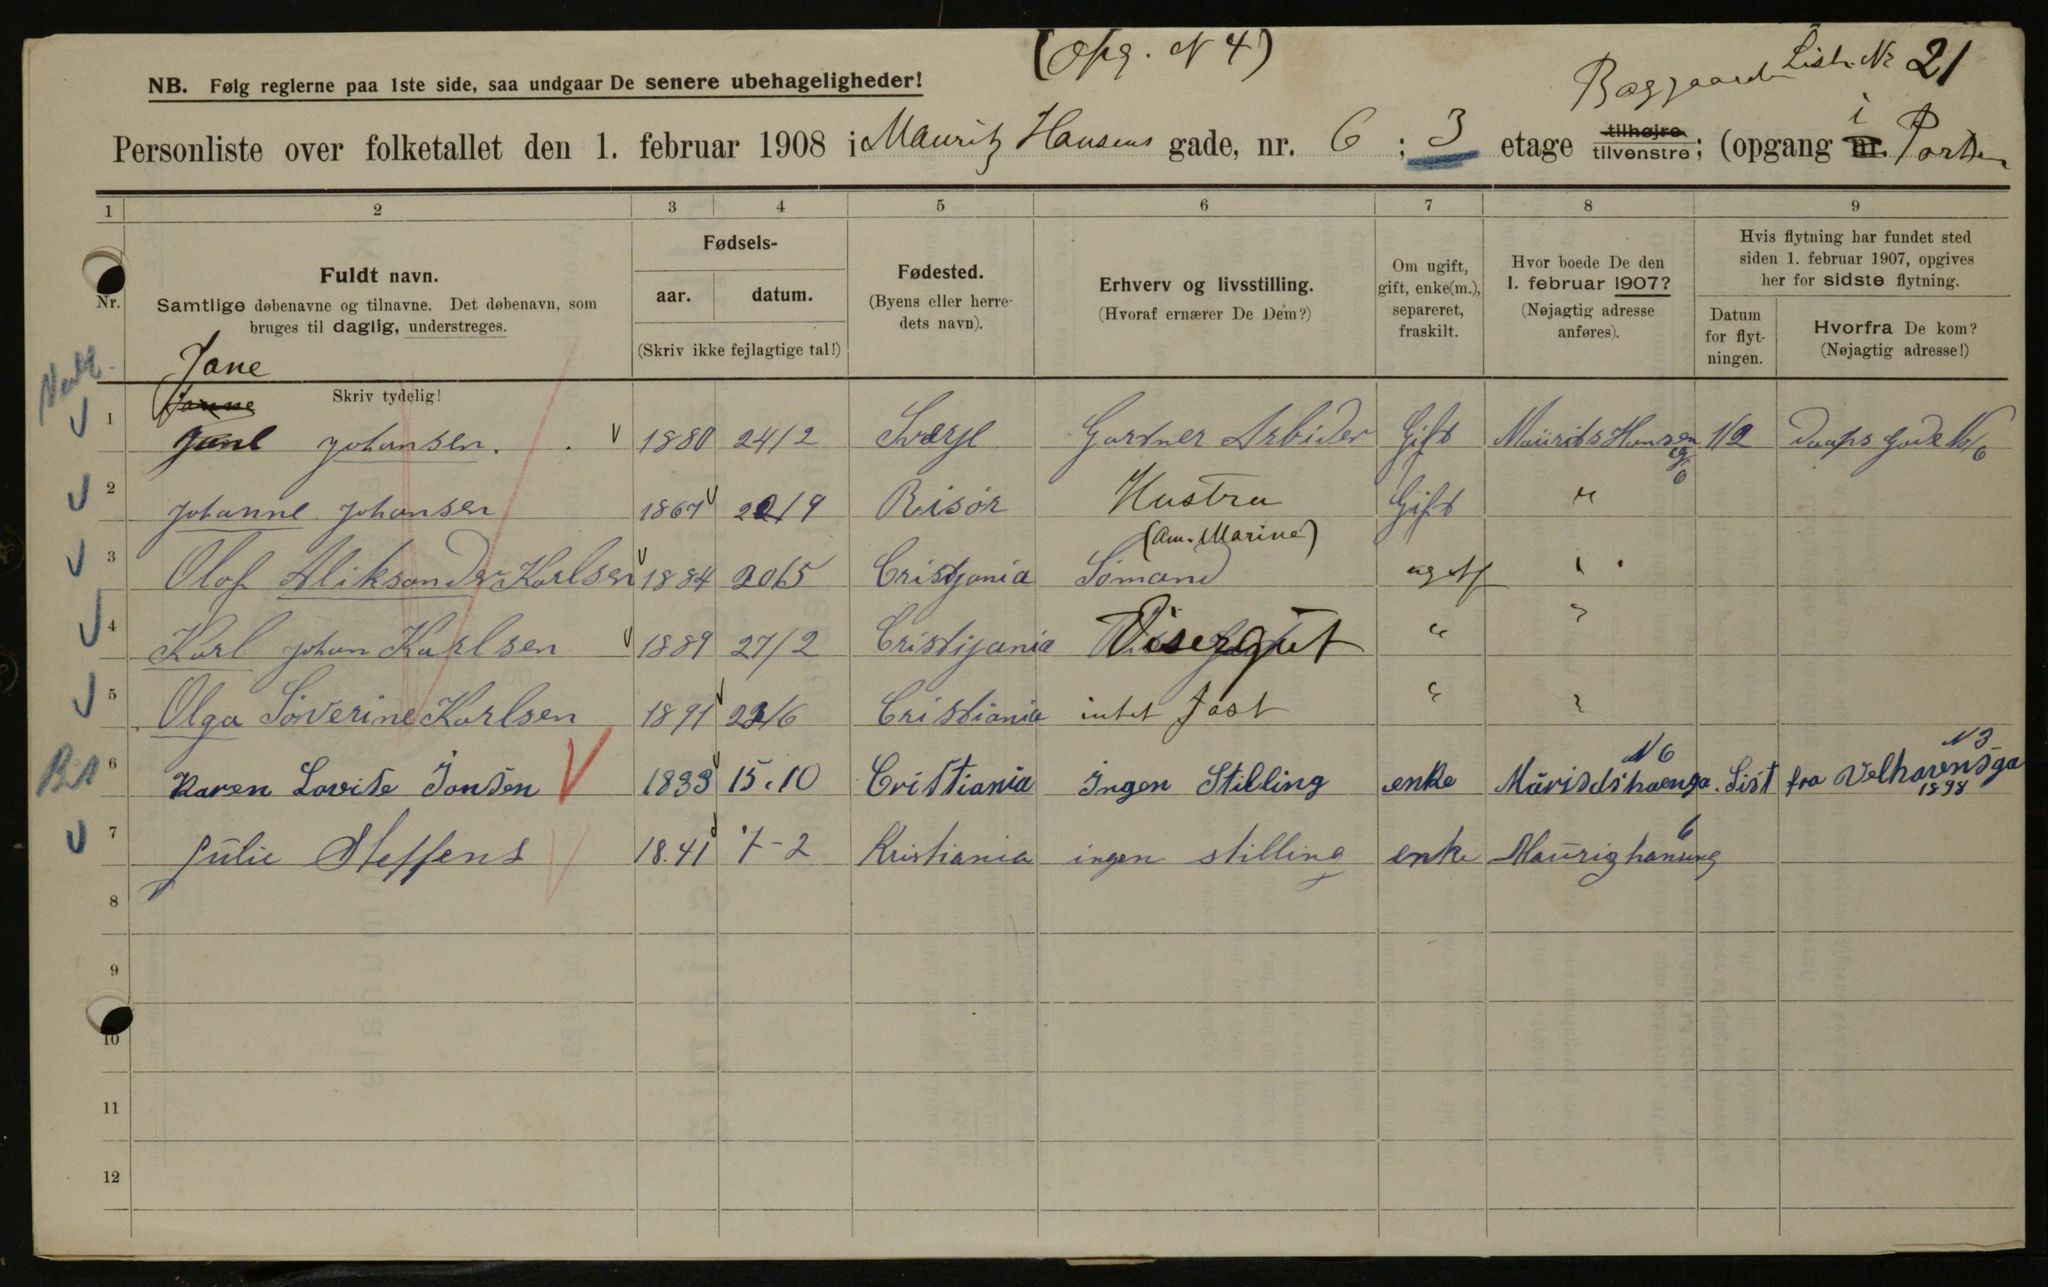 (Opg. N 4)
Baggaard List Nr 21
NB. Følg reglerne paa 1ste side, saa undgaar De senere ubehageligheder!
Personliste over folketallet den 1. februar 1908 i Mauritz Hansens gade, nr. 6 ; 3 etage tilhøjre tilvenstre; (opgang nr. i Porten
1 2 3 4 5 6 7 8 9
Nr.
Fuldt navn.
Samtlige døbenavne og tilnavne. Det døbenavn, som
bruges til daglig, understreges.
Skriv tydelig!
Fødsels-
aar. datum.
(Skriv ikke fejlagtige tal!)
Fødested.
(Byens eller herre-
dets navn).
Erhverv og livsstilling.
(Hvoraf ernærer De Dem?)
Om ugift,
gift, enke(m.),
separeret,
fraskilt.
Hvor boede De den
1. februar 1907?
(Nøjagtig adresse
anføres).
Hvis flytning har fundet sted
siden 1. februar 1907, opgives
her for sidste flytning.
Datum
for flyt-
ningen.
Hvorfra De kom?
(Nøjagtig adresse!)
Jane
Janne
1 Jane Johansen. 1880 24/2 Sverje Gartner Arbider Gift Maurits Hansen g 6 1/2 Daaps Gade N 6
2 Johanne Johansen 1867 22/9 Risör Hustru Gift "
(Am. Marine)
3 Olaf Aliksander Karlsen 1884 20/5 Cristjania Sömand ugift "
4 Karl Johan Karlsen 1889 27/2 Cristijania Visergut " "
5 Olga Söverine Karlsen 1891 22/6 Cristiania intet fast " "
6 Karen Lovise Jonsen 1833 15.10 Cristiania Ingen Stilling enke Mürisdshaensga. N 6 Sist fra Velhavensga N 3 1898
7 Julie Steffens 18.41 7-2 Kristiania ingen stilling enke Maurizhansensg 6
8
9
10
11
12